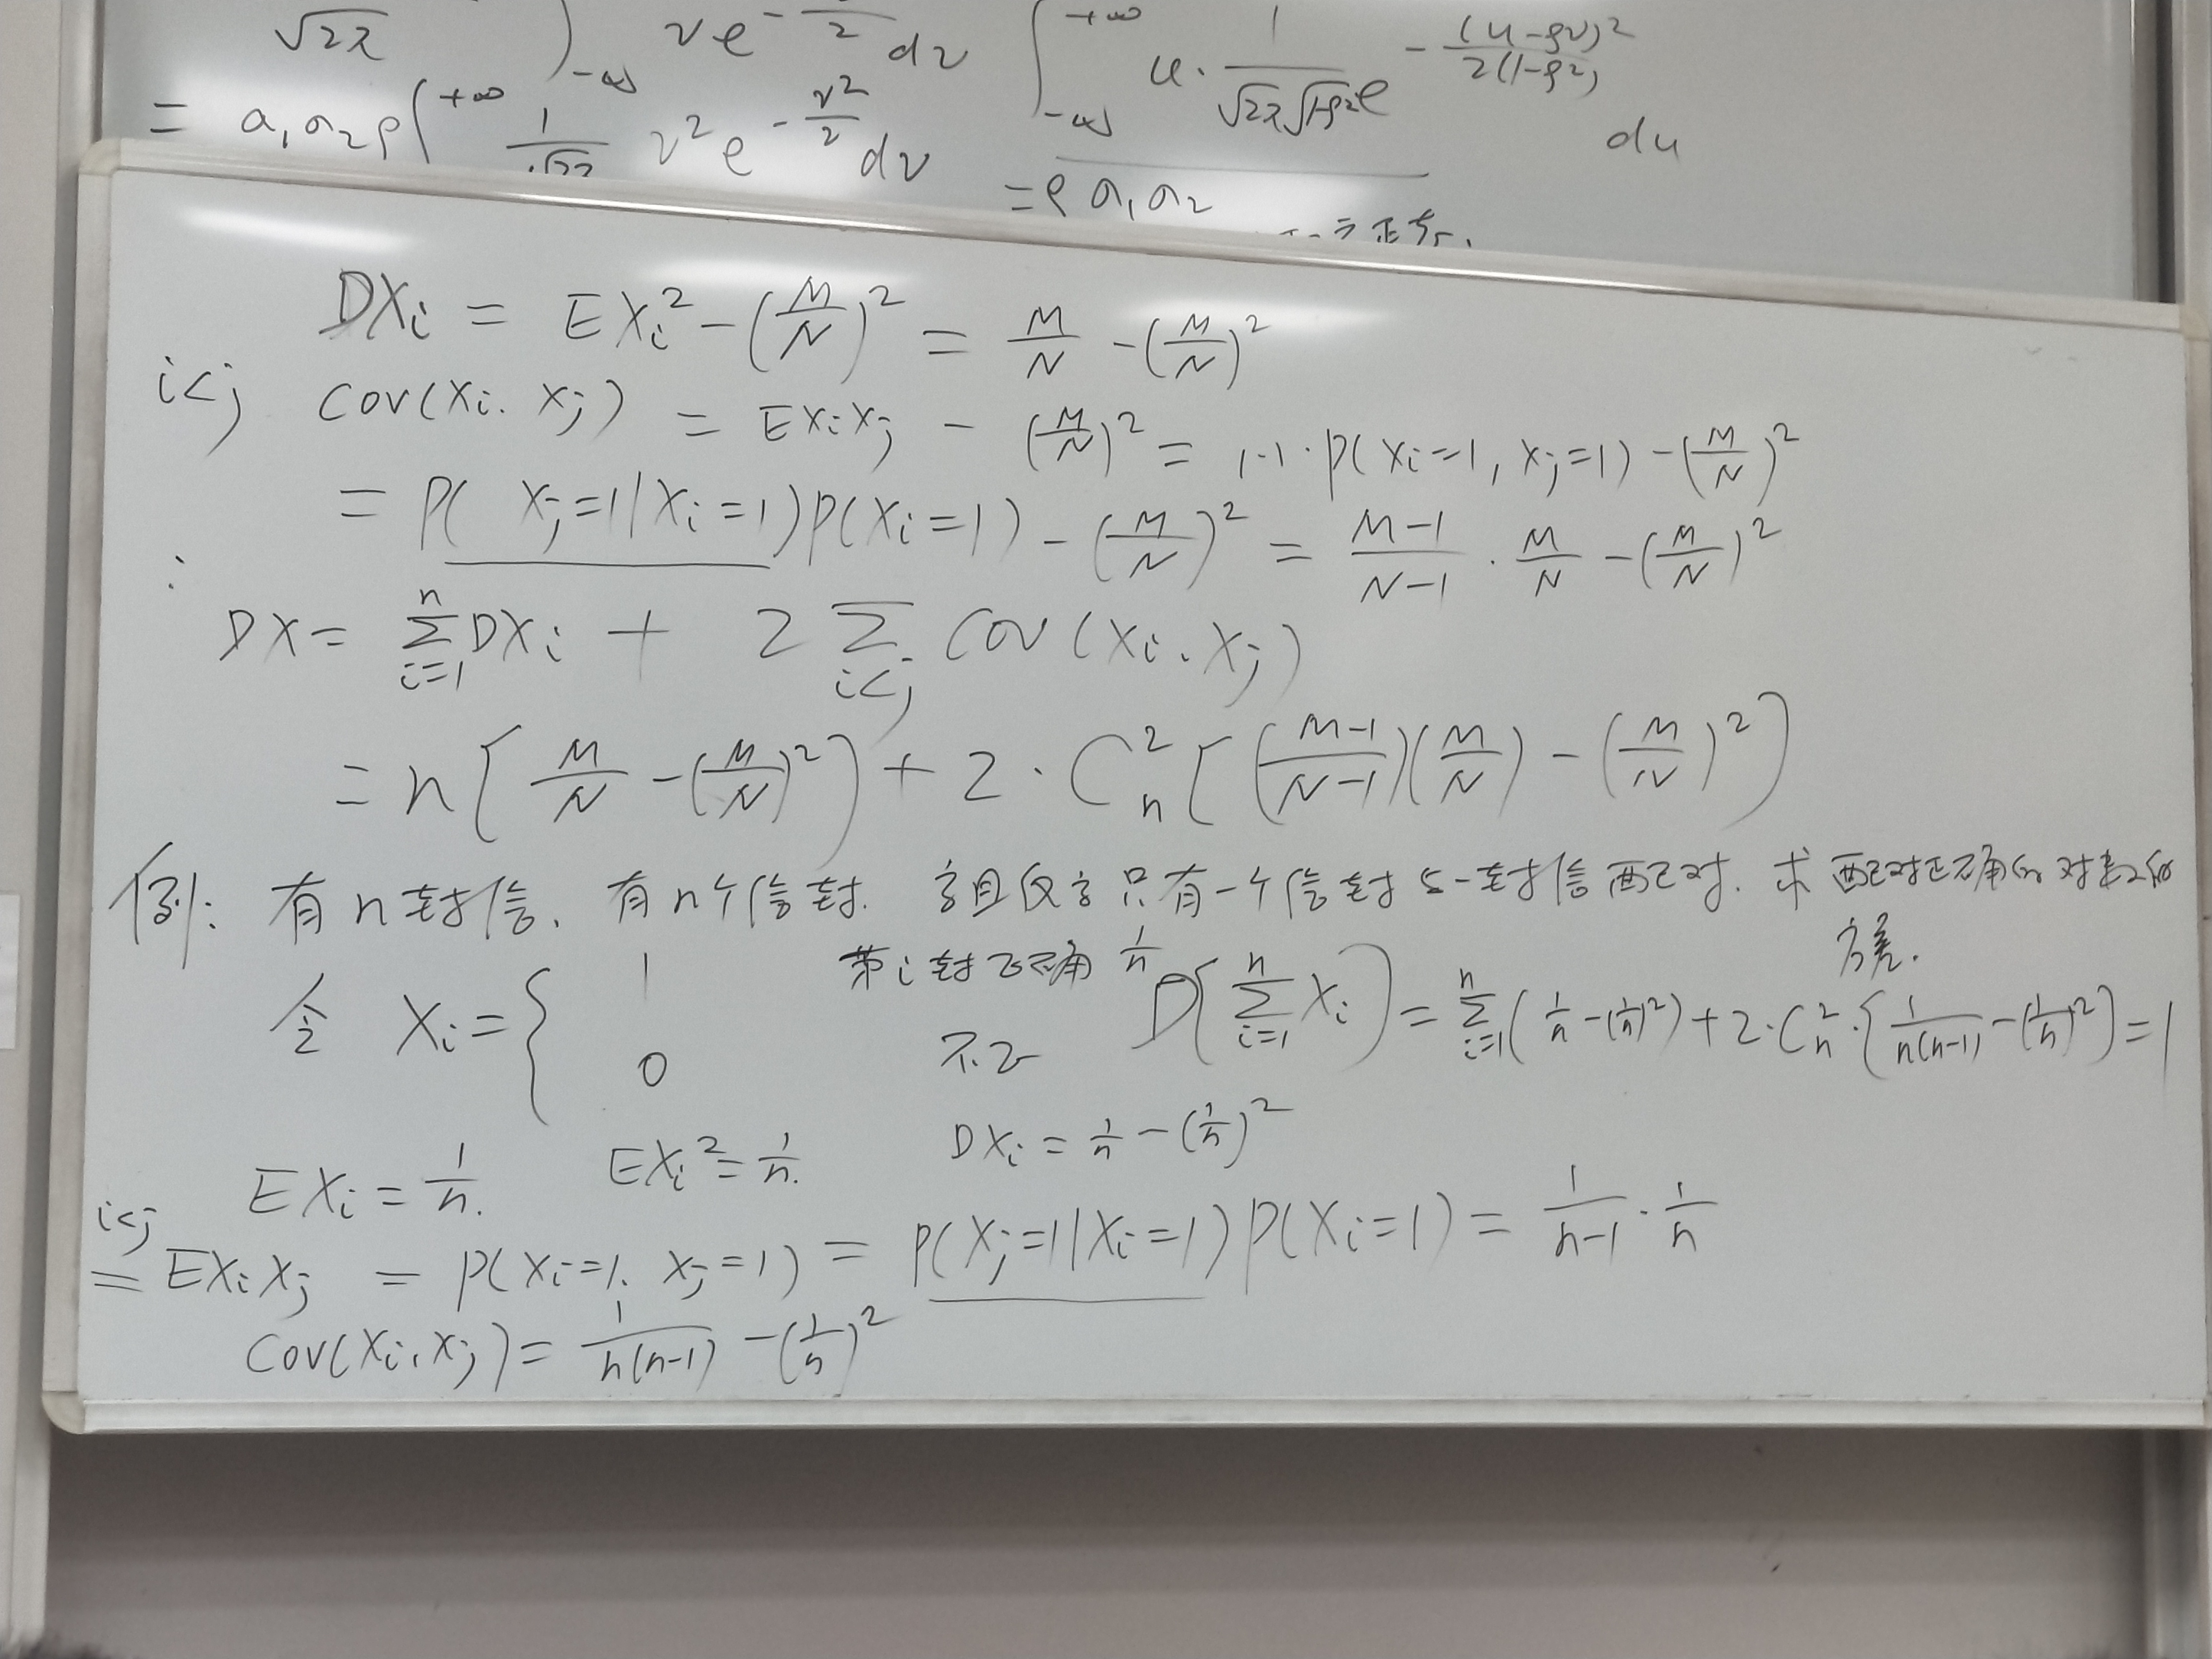 √2π ∫-∞ v e^{-\frac{}{2}} dv ∫_{-∞}^{+∞} u·\frac{1}{√2π√1-ρ²} e^{-\frac{(u-ρv)²}{2(1-ρ²)}} du
= σ₁σ₂ρ∫^{+∞} \frac{1}{√2π} v² e^{-\frac{v²}{2}} dv = ρσ₁σ₂
DXi = EXi² - (\frac{M}{N})² = \frac{M}{N} - (\frac{M}{N})²
i<j cov(Xi, Xj) = EXiXj - (\frac{M}{N})² = 1·1·P(Xi=1, Xj=1) - (\frac{M}{N})²
= P(Xj=1|Xi=1)P(Xi=1) - (\frac{M}{N})² = \frac{M-1}{N-1} · \frac{M}{N} - (\frac{M}{N})²
DX = \sum_{i=1}^{n} DXi + 2 \sum_{i<j} cov(Xi, Xj)
= n[\frac{M}{N} - (\frac{M}{N})²] + 2·C_n^2[(\frac{M-1}{N-1})(\frac{M}{N}) - (\frac{M}{N})²]
例: 有n封信, 有n个信封. 有且仅有只有一个信封与一封信配对. 求配对正确的对数的方差.
令 Xi = { 1 第i封正确 \frac{1}{n}
0 不正
D[\sum_{i=1}^{n} Xi] = \sum_{i=1}^{n}(\frac{1}{n} - (\frac{1}{n})²) + 2·C_n^2·[\frac{1}{n(n-1)} - (\frac{1}{n})²] = 1
EXi = \frac{1}{n}. EXi² = \frac{1}{n}. DXi = \frac{1}{n} - (\frac{1}{n})²
i<j
= EXiXj = P(Xi=1, Xj=1) = P(Xj=1|Xi=1)P(Xi=1) = \frac{1}{n-1} · \frac{1}{n}
cov(Xi, Xj) = \frac{1}{n(n-1)} - (\frac{1}{n})²